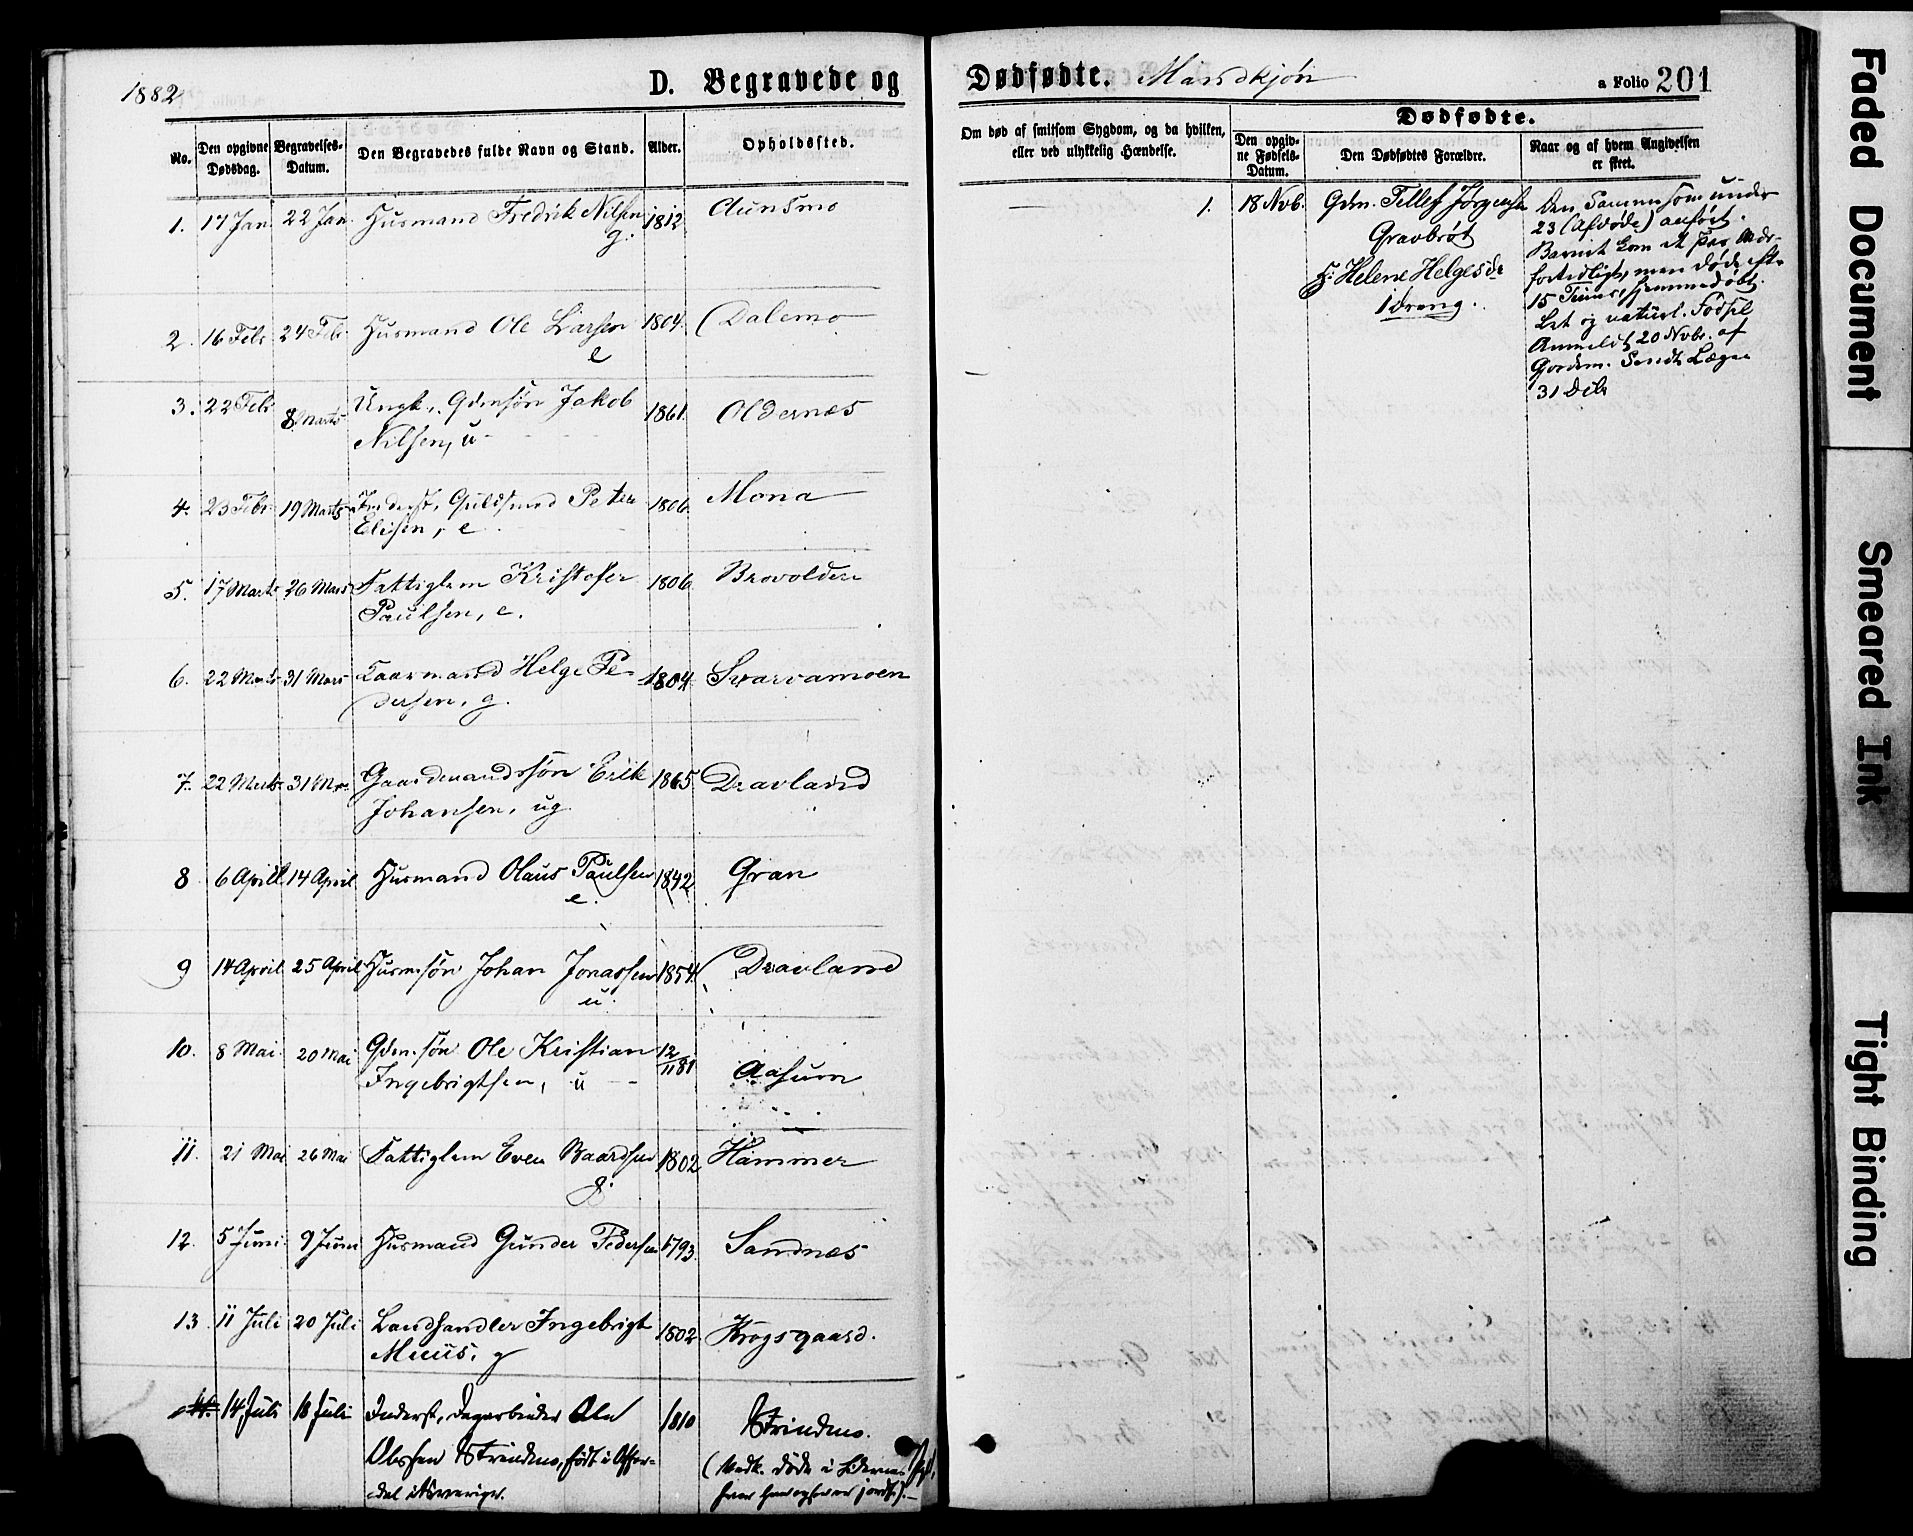 1882
D. Begravede og
No.
Den opgivne Dødsdag.
Begravelses-Datum.
Den Begravedes fulde Navn og Stand.
Alder.
Opholdssted.
1. 17 Jan. 22 Jan. Husmand Fredrik Nilsen 1812 Aunsmo
g.
2. 16 Febr 24 Febr. Husmand Ole Larsen 1804. Dalemo
e
3. 22 Febr 8 Marts Ungk., Gdmsøn Jakob 1861. Oldernes
Nilsen, u
4. 23 Febr. 19 Marts Inderst, Guldsmed Peter 1806. Mona
Elisen, e
5. 17 Marts 26 Mars Fattiglem Kristofer 1806 Brovolden
Paulsen, e.
6. 22 Marts 31 Mars Kaarmand Helge Pe- 1804. Svarvamoen
dersen, g.
7. 22 Marts 31 Mars Gaardmandssøn Erik 1865. Dravland
Johansen, ug
8 6 April 14 April Husmand Olaus Paulsen 1842 Gran
e.
9 14 April 25 April Husmsøn Johan Jonassen 1854 Dravland
u.
10. 8 Mai 20 Mai Gdm.søn Ole Kristian 12/11 81 Aasum
Ingebrigtsen, u
11. 21 Mai 26 Mai Fattiglem Even Baardsen 1802 Hammer
g.
12. 5 Juni 9 Juni Husmand Gunder Pedersen 1793. Sandnes
13. 11 Juli 20 Juli Landhandler Ingebrigt 1802 Krogsgaard.
Muus, g
14. 14 Juli 18 Juli Inderst, Dagarbeider Ole 1810 Strindmo.
Olssen Strindmo, født i Offer-
dal i Sverige.
(Vedk. døde i
Dødfødte. Mandkjøn
a Folio 201
Om død af smitsom Sygdom, og da hvilken,
eller ved ulykkelig Hændelse.
Dødfødte.
Den opgiv-
ne Fødsels-
Datum.
Den Dødfødtes Forældre.
Naar og af hvem Angivelsen
er skeet.
1. 18 Novb. Gdm. Tellef Jørgensen
Gravbrøt
H: Helene Helgesdr
1 dreng.
Den Samme som under
23 (Afdøde) anført.
Barnet kom et Par Mdr.
fortidligt, men døde efter
15 Timer, hjemmedøbt.
Let og naturl. Fødsel
Anmeldt 20 Nvbr. af
Gordem. Sendt Lægen
31 Dcbr
Faded Document
Smeared Ink
Tight Binding